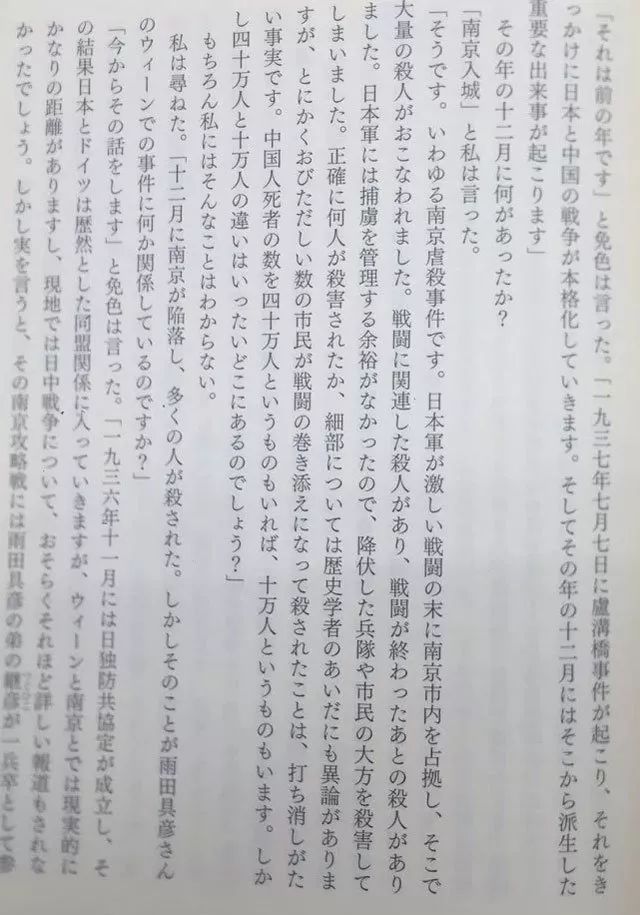 「それは前の年です」と免色は言った。「一九三七年七月七日に盧溝橋事件が起こり、それをき
っかけに日本と中国の戦争が本格化していきます。そしてその年の十二月にはそこから派生した
重要な出来事が起こります」
その年の十二月に何があったか?
「南京入城」と私は言った。
「そうです。いわゆる南京虐殺事件です。日本軍が激しい戦闘の末に南京市内を占拠し、そこで
大量の殺人がおこなわれました。戦闘に関連した殺人があり、戦闘が終わったあとの殺人があり
ました。日本軍には捕虜を管理する余裕がなかったので、降伏した兵隊や市民の大方を殺害して
しまいました。正確に何人が殺害されたか、細部については歴史学者のあいだにも異論がありま
すが、とにかくおびただしい数の市民が戦闘の巻き添えになって殺されたことは、打ち消しがた
い事実です。中国人死者の数を四十万人というものもいれば、十万人というものもいます。しか
し四十万人と十万人の違いはいったいどこにあるのでしょう?」
もちろん私にはそんなことはわからない。
私は尋ねた。「十二月に南京が陥落し、多くの人が殺された。しかしそのことが雨田具彦さん
のウィーンでの事件に何か関係しているのですか?」
「今からその話をします」と免色は言った。「一九三六年十一月には日独防共協定が成立し、そ
の結果日本とドイツは歴然とした同盟関係に入っていきますが、ウィーンと南京とでは現実的に
かなりの距離がありますし、現地では日中戦争について、おそらくそれほど詳しい報道もされな
かったでしょう。しかし実を言うと、その南京攻略戦には雨田具彦の弟の継彦が一兵卒として参